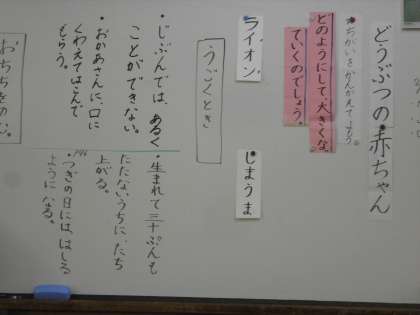 どうぶつの赤ちゃん
ちがいをかんがえてみよう
どのようにして、大きくなっ
ていくのでしょう。
ライオン
しまうま
うごくとき
・じぶんでは、あるく
ことができない。
・おかあさんに、口に
くわえてはこんで
もらう。
・生まれて三十ぷんも
たたないうちに、たち
上がる。
・つぎの日には、はしる
ように なる。
おちちをのむ。